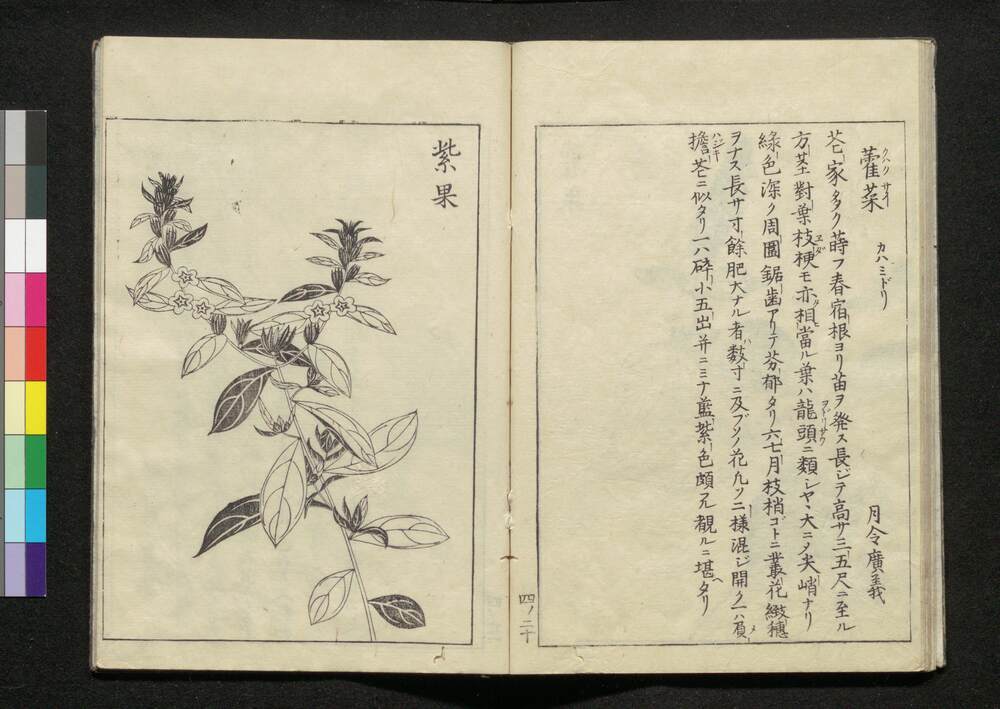 藿菜 クハクサイ カハミドリ 月令廣義
花家多ク蒔フ春宿根ヨリ苗ヲ発ス長ジテ高サ三五尺ニ至ル
方茎對葉枝梗モ亦相當ル葉ハ龍頭ニ類シヤヽ大ニメ尖峭ナリ
綠色深ク周圍鋸歯アリテ芬郁タリ六七月枝梢ゴトニ叢花緻穗
ヲナス長サ寸餘肥大ナル者ハ数寸ニ及ブソノ花凡ソ二様混ジ開ク一ハ
擔花ニ似タリ一ハ碎小五出并ニミナ藍紫色頗ル観ルニ堪タリ
四ノ二十
紫果